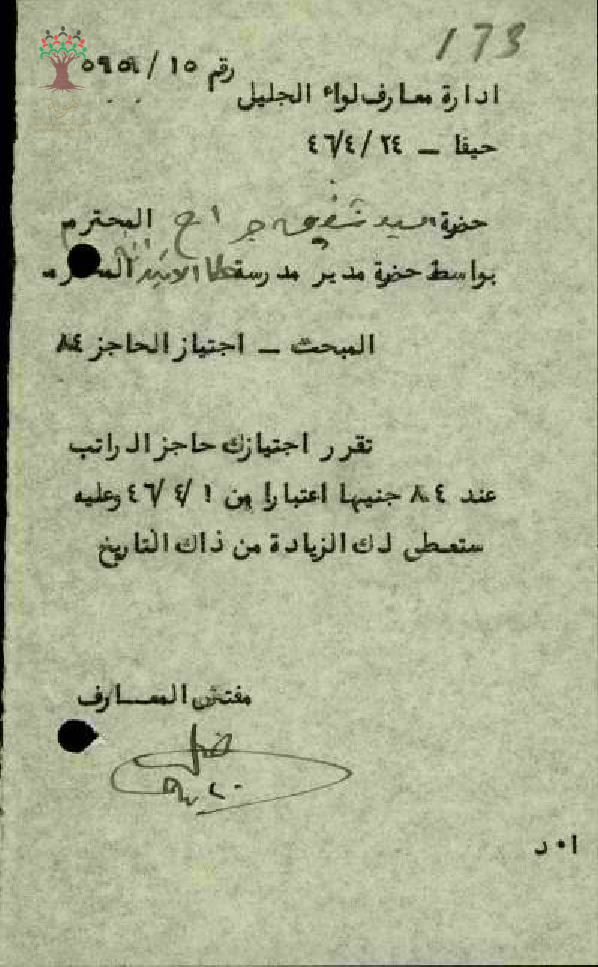 173
رقم ١٥ / ٥٩٥٩
ادارة معارف لواء الجليل
حيفا – ٢٤ /٤/ ٤٦
حضرة السيد شفيق جراح المحترم
بواسطة حضرة مدير مدرسة المحترم
المبحث – اجتياز الحاجز ٨٤
تقرر اجتيازك حاجز الراتب
عند ٨٤ جنيها اعتبارا من ١ /٤ /٤٦ وعليه
ستعطى لك الزيادة من ذاك التاريخ
مفتش المعـــارف
ا٠د